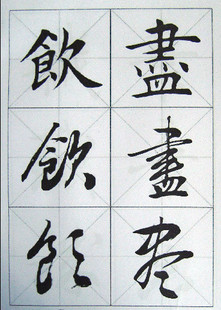 盡盡尽
飲飲飲